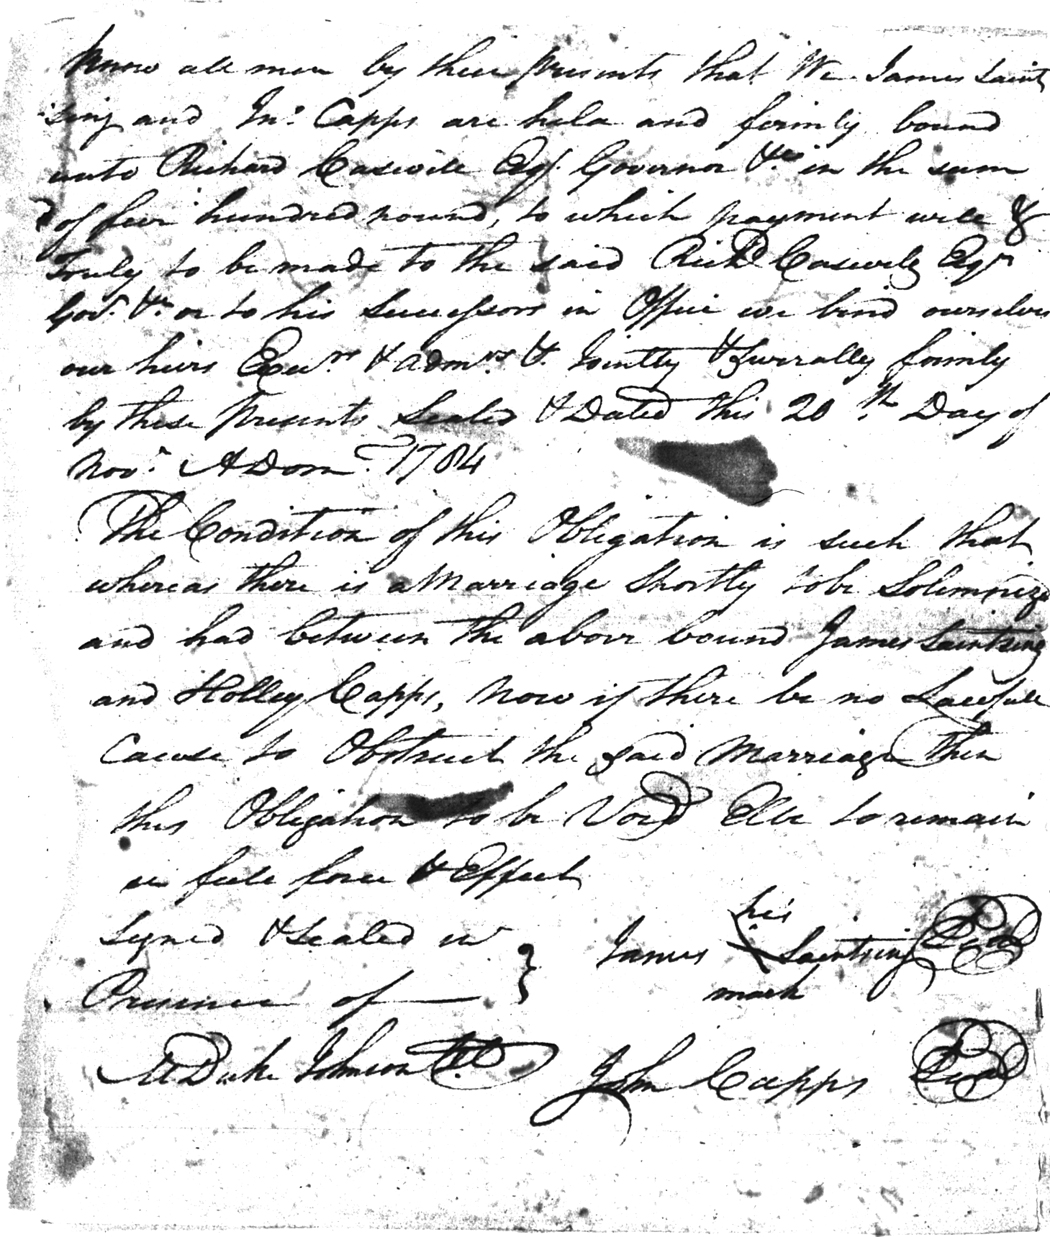 Know all men by these presents that We James Saint
sing and Jno. Capps are held and firmly bound
unto Richard Caswell Esqr. Governor &c in the sum
of five hundred pound, to which payment well &
Truly to be made to the said Richd Caswell Esqr
Govr. &c or to his Successors in Office we bind ourselves
our heirs Exers. & Admrs & Jointly & Severally firmly
by these Presents Sealed & Dated this 20th Day of
Novr. A Dom. 1784
The Condition of this Obligation is such that
whereas there is a Marriage Shortly to be Solemnizd
and had between the above bound James Saintsing
and Holley Capps, Now if there be no Lawfull
Cause to Obstruct the said Marriage Then
this Obligation to be Void Else to remain
in full force & Effect
Signed & Sealed in
Presence of
his
James X Saintsing Seal
mark
M Duke Johnson
John Capps Seal